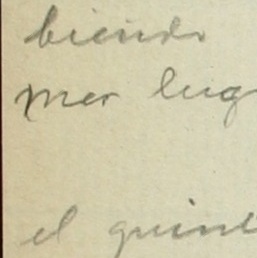 biendo
mer lug
el quint